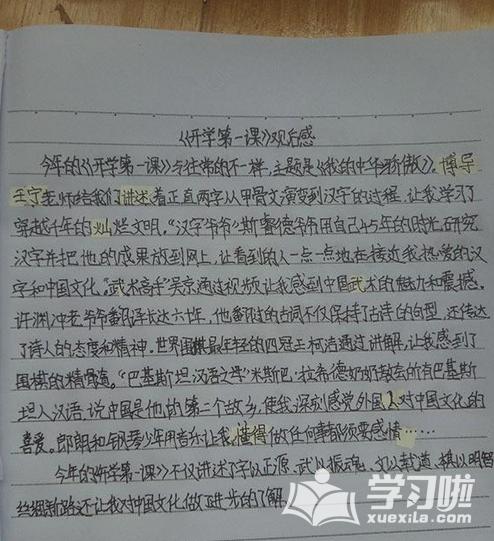 《开学第一课》观后感
今年的《开学第一课》与往常的不一样,主题是《我的中华骄傲》。博导
王宁老师给我们讲述着正直两字从甲骨文演变到汉字的过程,让我学习了
穿越千年的灿烂文明。“汉字爷爷”斯睿德爷爷用自己45年的时光,研究
汉字并把他的成果放到网上,让看到的人一点一点地在接近我热爱的汉
字和中国文化。“武术高手”吴京通过视频让我感到中国武术的魅力和震撼。
许渊冲老爷爷翻译长达六十年,他翻译过的古词不仅保持了古诗的句型,还传达
了诗人的态度和精神。世界围棋最年轻的四冠王柯洁通过讲解,让我感到了
围棋的精髓。“巴基斯坦汉语之母”米斯巴·拉希德奶奶教会所有巴基斯
坦人汉语,说中国是他的第二个故乡,使我深刻感觉外国人对中国文化的
喜爱。郎朗和钢琴少年用音乐让我懂得做任何事都须要感情……
今年的《开学第一课》不仅讲述了字以正源,武以振魂,文以载道,棋以明智
丝绸新路还让我对中国文化做了进步的了解
学习啦
xuexila.com